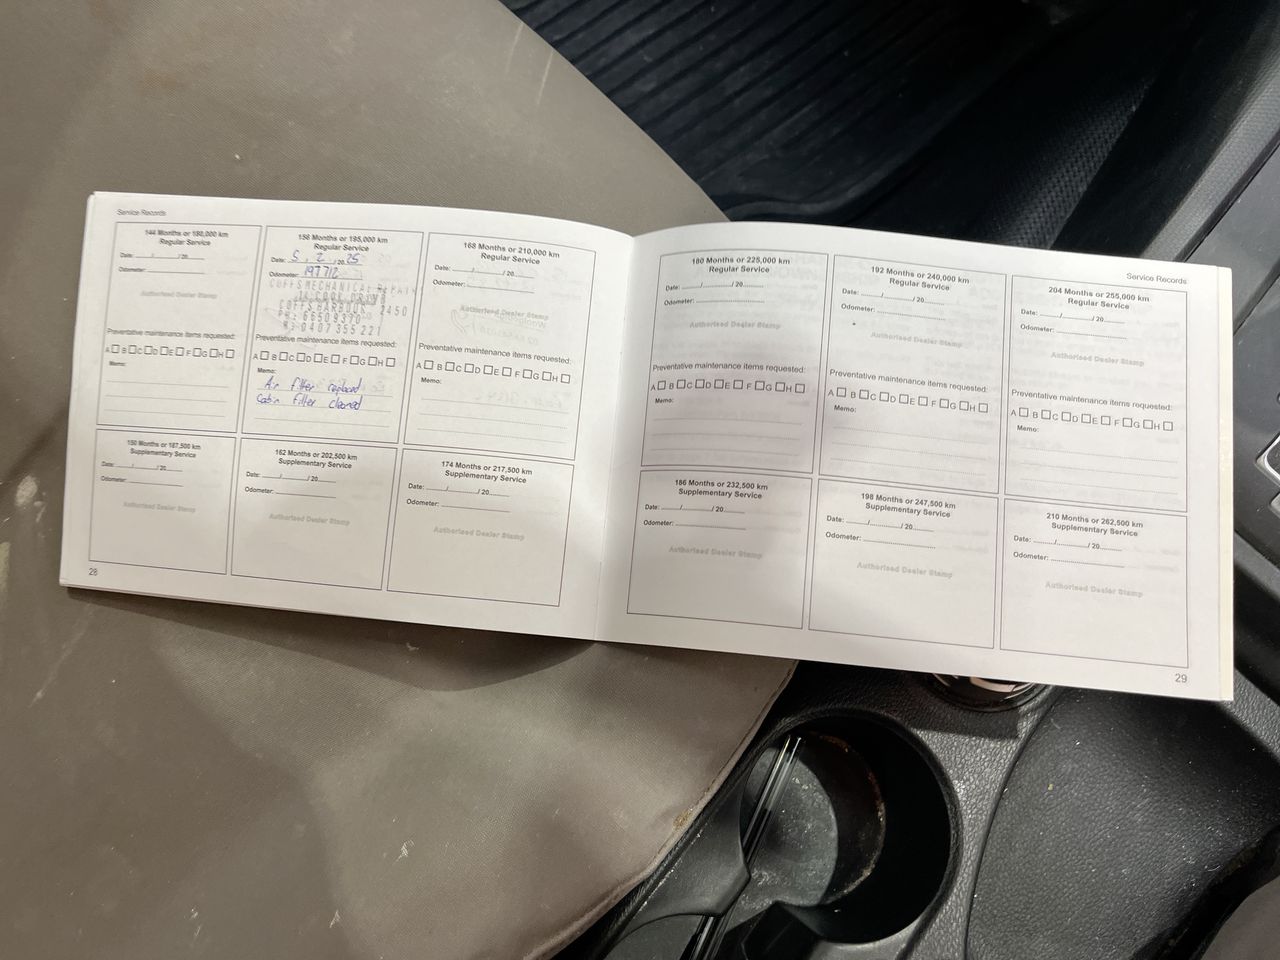 Service Records
144 Months or 180,000 km
Regular Service
Date: ....../....../20......
Odometer: ..............
Authorised Dealer Stamp
Preventative maintenance items requested:
A □ B □ C □ D □ E □ F □ G □ H □
Memo:
156 Months or 195,000 km
Regular Service
Date: 5 / 2 / 20 25
Odometer: 197712
COFFS MECHANICAL REPAIRS
COFFS HARBOUR 2450
PH: 66509370
M: 0407 355 221
Preventative maintenance items requested:
A □ B □ C □ D □ E □ F □ G □ H □
Memo:
Air filter replaced
Cabin filter cleaned
168 Months or 210,000 km
Regular Service
Date: ....../....../20......
Odometer: ..............
Authorised Dealer Stamp
Preventative maintenance items requested:
A □ B □ C □ D □ E □ F □ G □ H □
Memo:
150 Months or 187,500 km
Supplementary Service
Date: ....../....../20......
Odometer: ..............
Authorised Dealer Stamp
162 Months or 202,500 km
Supplementary Service
Date: ....../....../20......
Odometer: ..............
Authorised Dealer Stamp
174 Months or 217,500 km
Supplementary Service
Date: ....../....../20......
Odometer: ..............
Authorised Dealer Stamp
28
Service Records
180 Months or 225,000 km
Regular Service
Date: ....../....../20......
Odometer: ..............
Authorised Dealer Stamp
Preventative maintenance items requested:
A □ B □ C □ D □ E □ F □ G □ H □
Memo:
192 Months or 240,000 km
Regular Service
Date: ....../....../20......
Odometer: ..............
Authorised Dealer Stamp
Preventative maintenance items requested:
A □ B □ C □ D □ E □ F □ G □ H □
Memo:
204 Months or 255,000 km
Regular Service
Date: ....../....../20......
Odometer: ..............
Authorised Dealer Stamp
Preventative maintenance items requested:
A □ B □ C □ D □ E □ F □ G □ H □
Memo:
186 Months or 232,500 km
Supplementary Service
Date: ....../....../20......
Odometer: ..............
Authorised Dealer Stamp
198 Months or 247,500 km
Supplementary Service
Date: ....../....../20......
Odometer: ..............
Authorised Dealer Stamp
210 Months or 262,500 km
Supplementary Service
Date: ....../....../20......
Odometer: ..............
Authorised Dealer Stamp
29